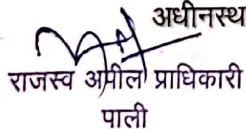 अधीनस्थ
राजस्व अपील प्राधिकारी
पाली